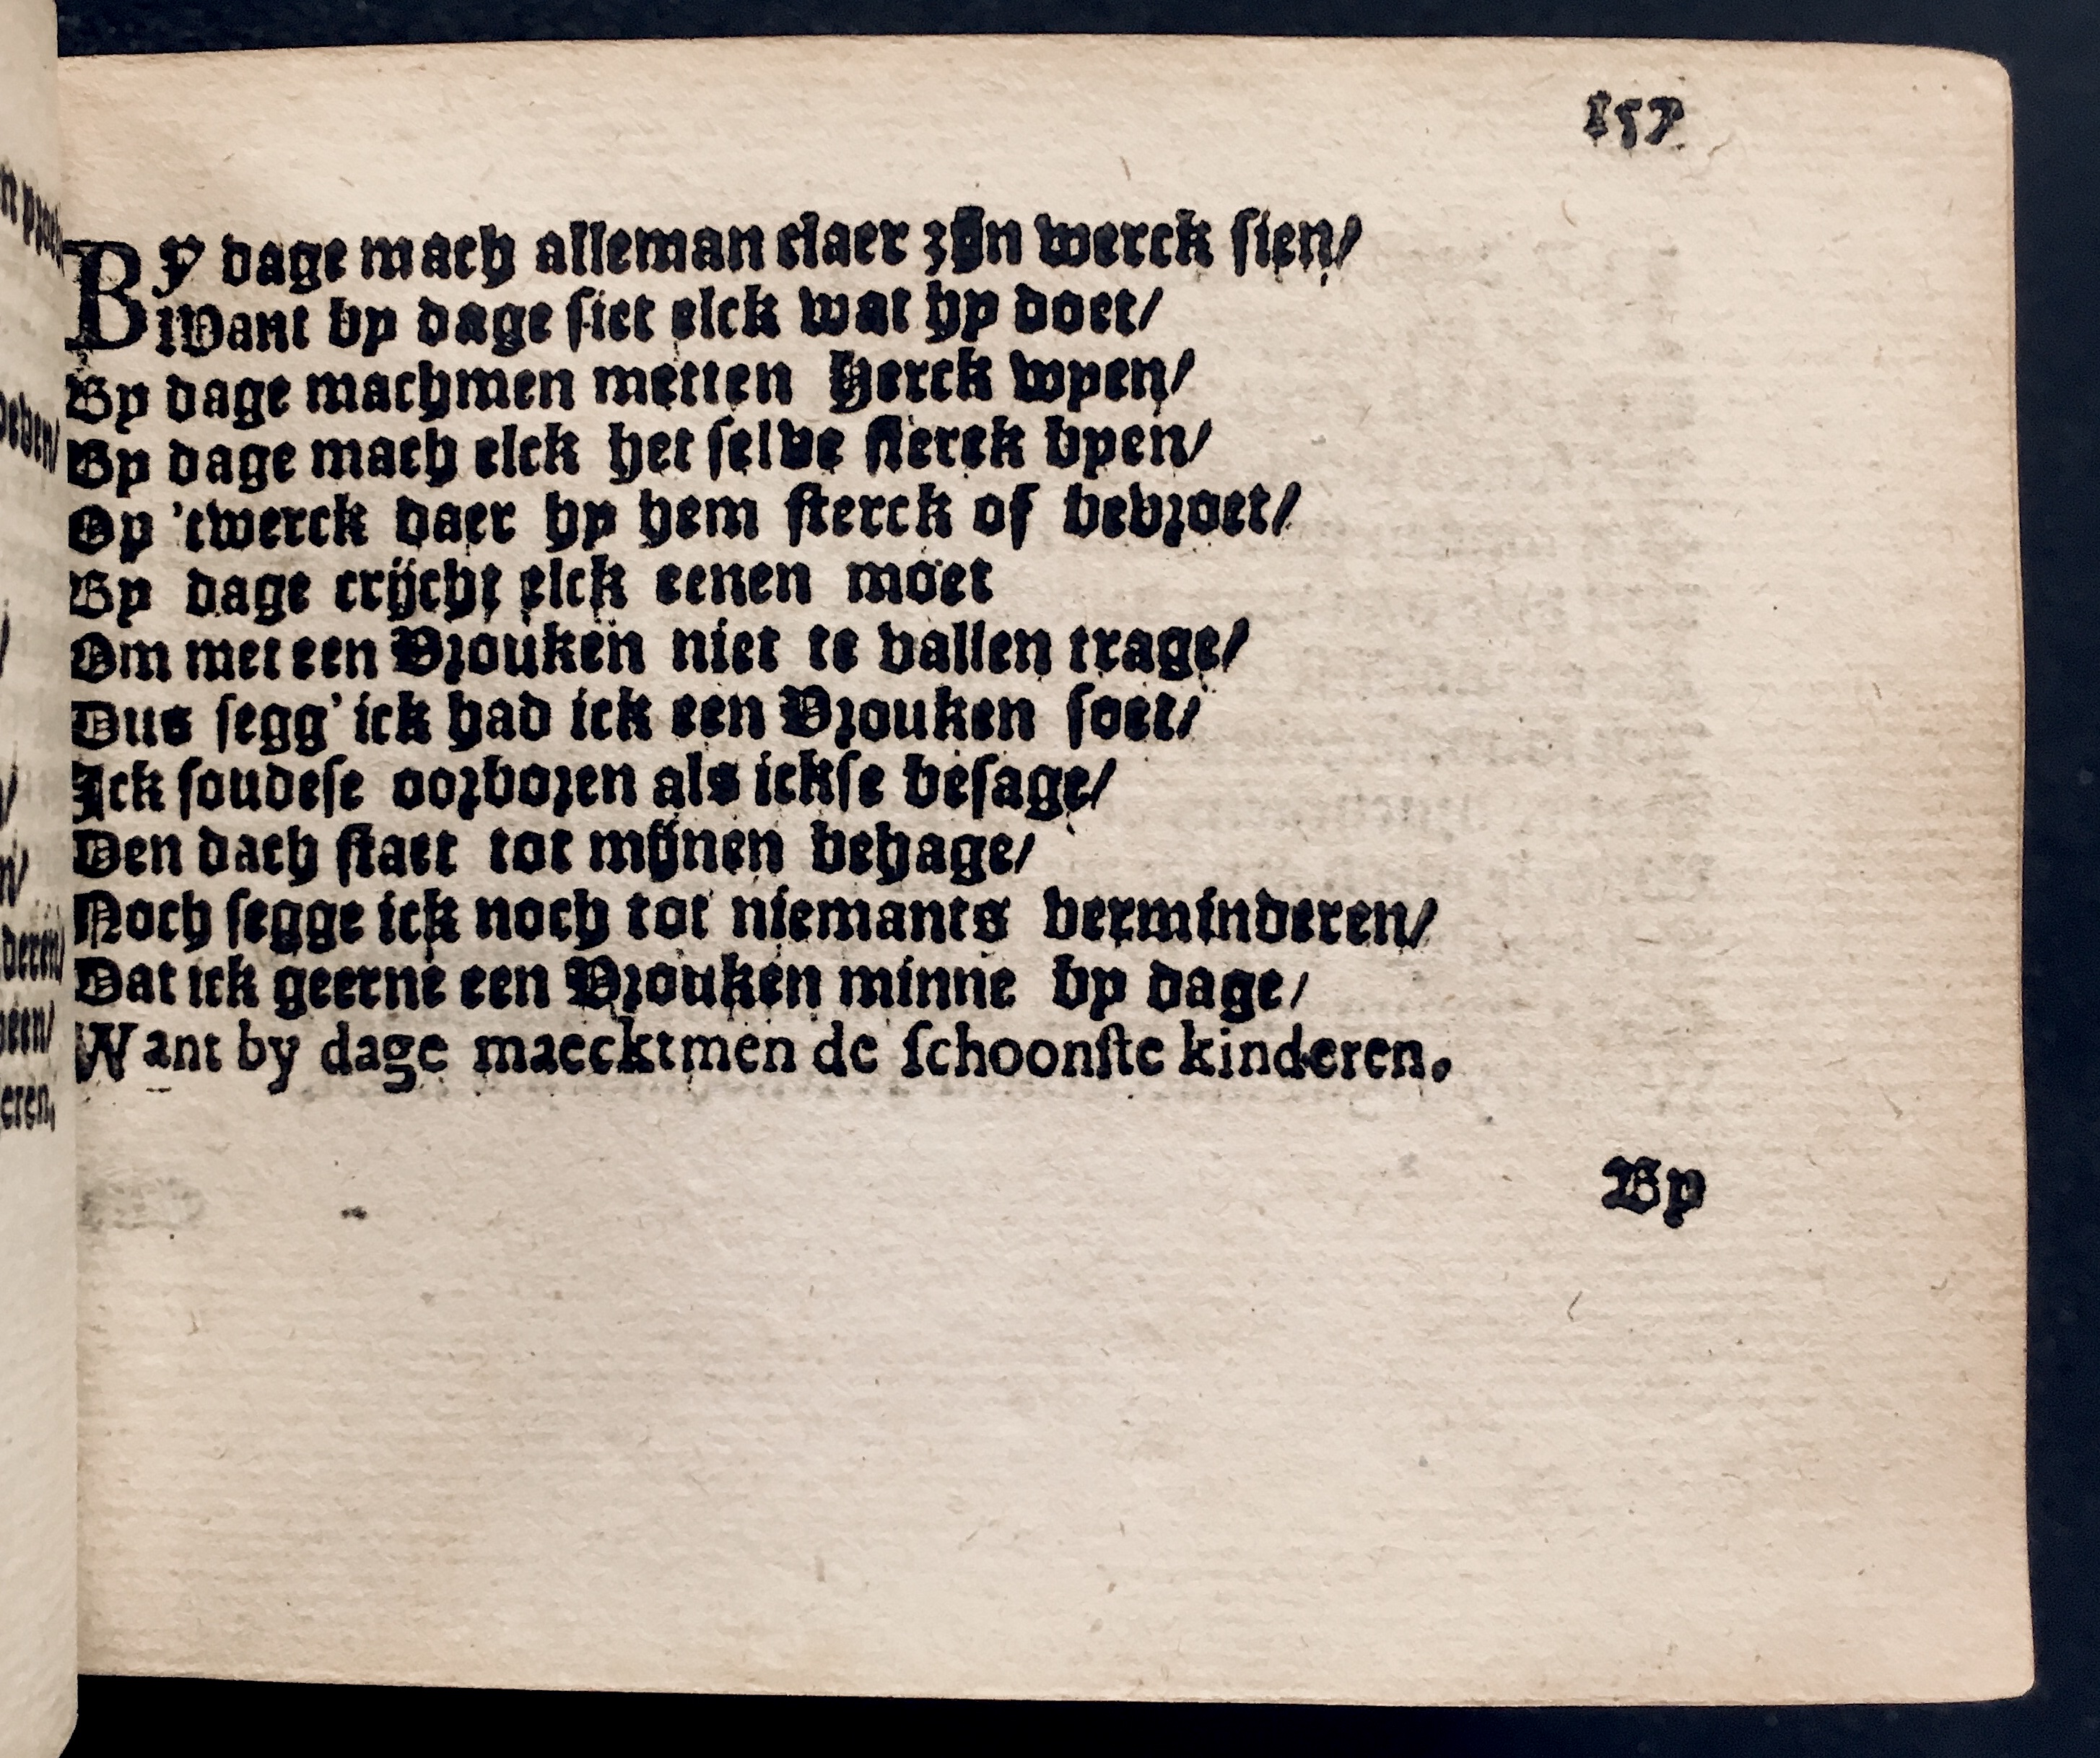 157
By dage mach alleman claer zijn werck sien/
Want by dage siet elck wat hy doet/
By dage machmen metten Herck wyen/
By dage mach elck het selve sterck vyen/
Op 'twerck daer hy hem sterck of bevroet/
By dage crijcht elck eenen moet
Om met een Vrouken niet te vallen trage/
Dus segg' ick had ick een Vrouken soet/
Ick soudese oorboren als ickse besage/
Den dach staet tot mijnen behage/
Noch segge ick noch tot niemants verminderen/
Dat ick geerne een Vrouken minne by dage/
Want by dage maecktmen de schoonste kinderen.
By